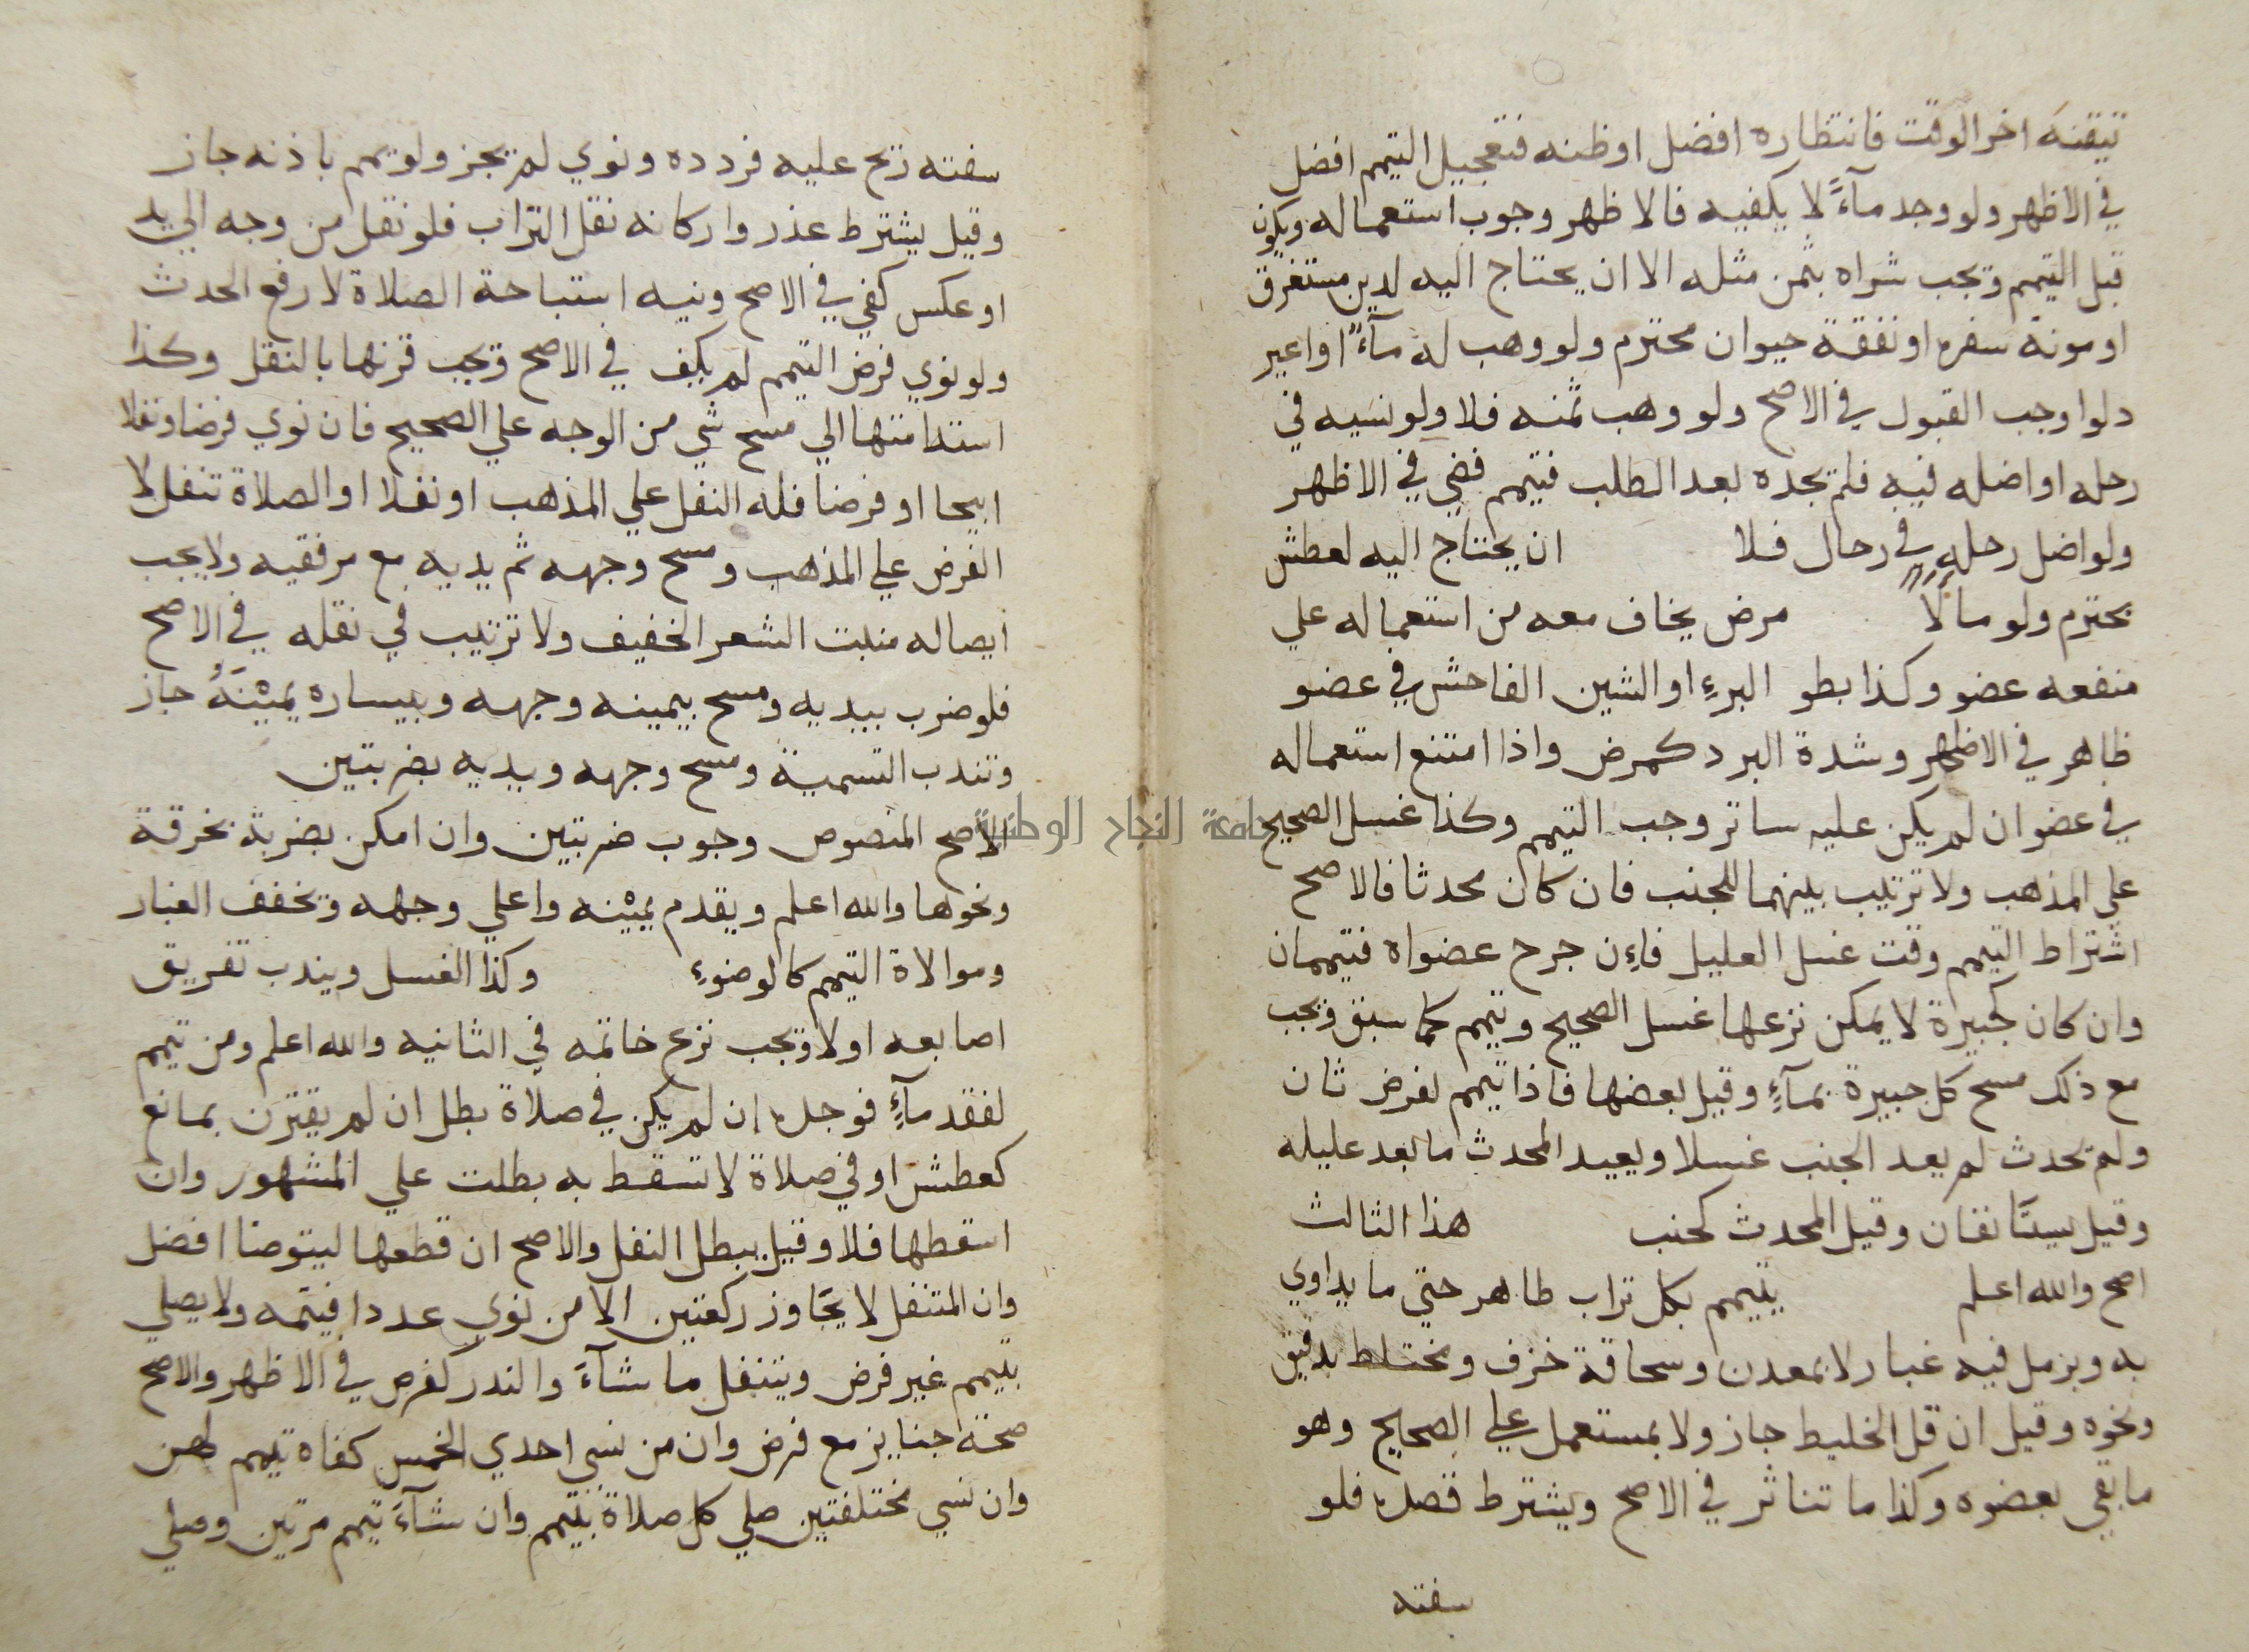 تيقنه اخر الوقت فانتظاره افضل اوظنه فتعجيل التيمم افضل
في الاظهر ولو وجد مآءً لا يكفيه فالاظهر وجوب استعماله ويكون
قبل التيمم وتجب شراه بثمن مثله الا ان يحتاج اليه لدين مستغرق
او مونة سفره او نفقة حيوان محترم ولو وهب له مآءً او اعير
دلوا وجب القبول في الاصح ولو وهب ثمنه فلا ولو نسيه في
رحله او اضله فيه فلم تجده بعد الطلب فتيمم قضي في الاظهر
ولو اضل رحله في رحال فلا ان يحتاج اليه لعطش
محترم ولو مالًا مرض يخاف معه من استعماله علي
منفعه عضو وكذا بطو البرءِ او الشين الفاحش في عضو
ظاهر في الاظهر وشدة البرد كمرض واذا امتنع استعماله
في عضو ان لم يكن عليه ساتر وجب التيمم وكذا غسل الصحيح
علي المذهب ولا ترتيب بينهما للجنب فان كان محدثا فالاصح
اشتراط التيمم وقت غسل العليل فاءِن جرح عضواه فتيممان
وان كان كجبيرة لا يمكن نزعها غسل الصحيح وتيمم كما سبق وتجب
مع ذلك مسح كل جبيرة بمآءٍ وقيل بعضها فاذا تيمم لفرض ثان
ولم تحدث لم يعد الجنب غسلا ويعيد المحدث ما بعد عليله
وقيل يستانفان وقيل المحدث كجنب هذا الثالث
اصح والله اعلم يتيمم بكل تراب طاهر حتي ما يداوي
به وبرمل فيه غبار لا بمعدن وسحاقة خزف ومختلط بدقيق
ونحوه وقيل ان قل الخليط جاز ولا بمستعمل علي الصحيح وهو
ما بقي بعضوه وكذا ما تناثر في الاصح ويشترط قصده فلو
سفته
سفته ريح عليه فردده ونوي لم تجز ولو تيمم باذنه جاز
وقيل يشترط عذر واركانه نقل التراب فلو نقل من وجه الي يد
او عكس كفي في الاصح ونيه استباحة الصلاة لا رفع الحدث
ولو نوي فرض التيمم لم يكف في الاصح وتجب قرنها بالنقل وكذا
استدامتها الي مسح شي من الوجه علي الصحيح فان نوي فرضا ونفلا
ابيحا او فرضا فله النفل علي المذهب او نفلا او الصلاة تنفل لا
الفرض علي المذهب ومسح وجهه ثم يديه مع مرفقيه ولا يجب
ايصاله منبت الشعر الخفيف ولا ترتيب في نقله في الاصح
فلو ضرب بيديه ومسح بيمينه وجهه وبيساره يميْنَهُ جاز
وتندب التسمية ومسح وجهه ويديه بضربتين
الاصح المنصوص وجوب ضربتين وان امكن بضربة بخرقة
ونحوها والله اعلم ويقدم يميْنه واعلي وجهه وتخفف الغبار
وموالاة التيمم كالوضوءِ وكذا الغسل ويندب تفريق
اصابعه اولا وتجب نزع خاتمه في الثانيه والله اعلم ومن تيمم
لفقد مآءٍ فوجده ان لم يكن في صلاة بطل ان لم يقترن بمانع
كعطش او في صلاة لا تسقط به بطلت علي المشهور وان
اسقطها فلا وقيل يبطل النفل والاصح ان قطعها ليتوضا افضل
وان المتنفل لا يجاوز ركعتين الا من نوي عددا فيتمه ولا يصلي
بتيمم غير فرض ويتنفل ما شآءَ والنذر كفرض في الاظهر والاصح
صحة جنايز مع فرض وان من نسي احدي الخمس كفاه تيمم لهن
وان نسي مختلفتين صلي كل صلاة بتيمم وان شآءَ تيمم مرتين وصلي
جامعة النجاح الوطنية